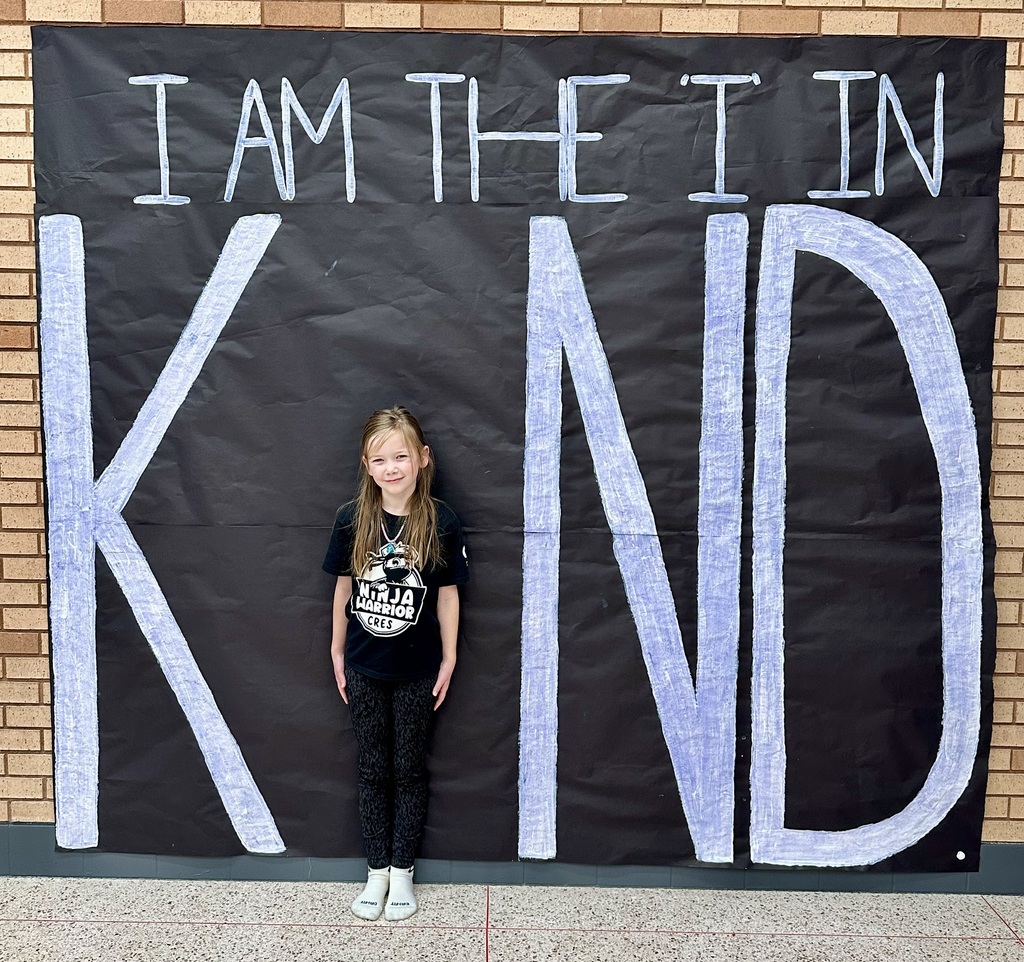 I AM THE "I" IN
K ND
NINJA
WARRIOR
CRES